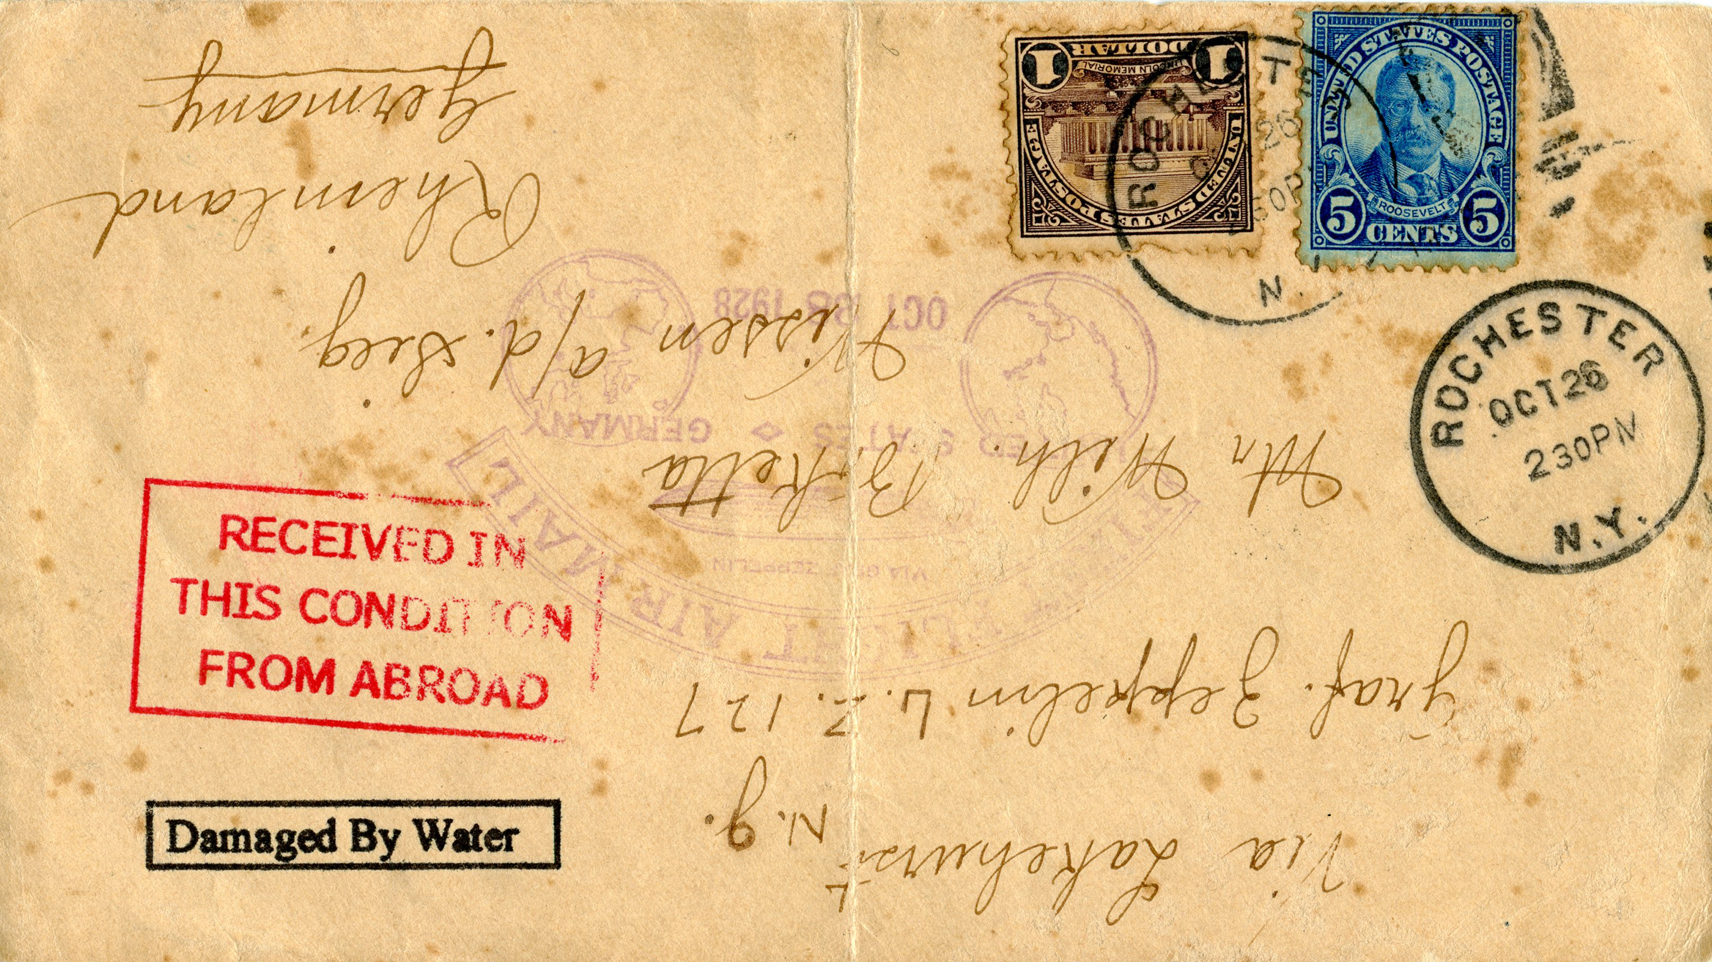 Via Lakehurst
N.J.
Graf. Zeppelin L.Z. 127
Mr Wilh.
Wissen a/d. Sieg.
Rheinland
Germany
1 1
DOLLAR
LINCOLN MEMORIAL
UNITED STATES POSTAGE
UNITED STATES POSTAGE
ROOSEVELT
5 CENTS 5
ROCHESTER
N.
ROCHESTER
OCT 26
230PM
N.Y.
FLIGHT AIR MAIL
VIA GRAF ZEPPELIN
UNITED STATES GERMANY
OCT 28 1928
RECEIVED IN
THIS CONDITION
FROM ABROAD
Damaged By Water